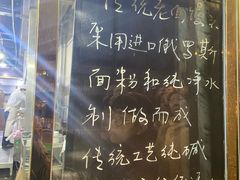 传统老面馒头
采用进口俄罗斯
面粉和纯净水
制做而成
传统工艺纯碱